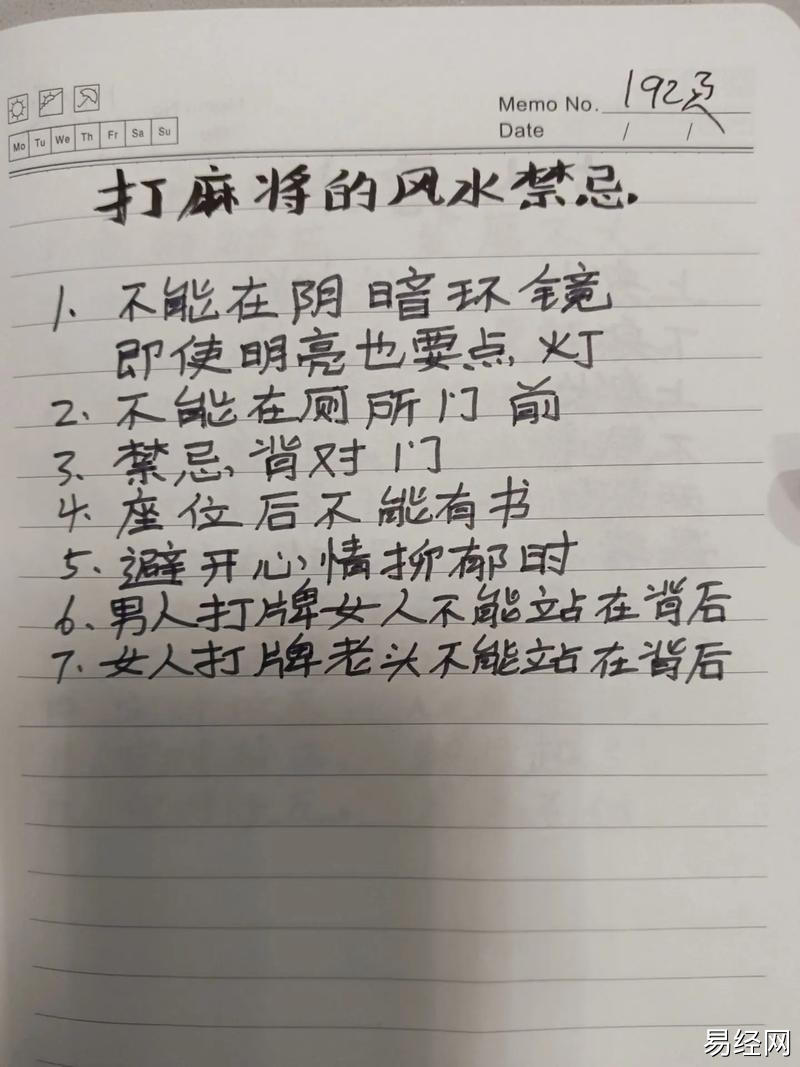 Memo No. 1923
Mo Tu We Th Fr Sa Su
Date / /
打麻将的风水禁忌.
1. 不能在阴暗环镜
即使明亮也要点灯
2. 不能在厕所门前
3. 禁忌背对门
4. 座位后不能有书
5. 避开心情抑郁时
6. 男人打牌女人不能站在背后
7. 女人打牌老头不能站在背后
易经网